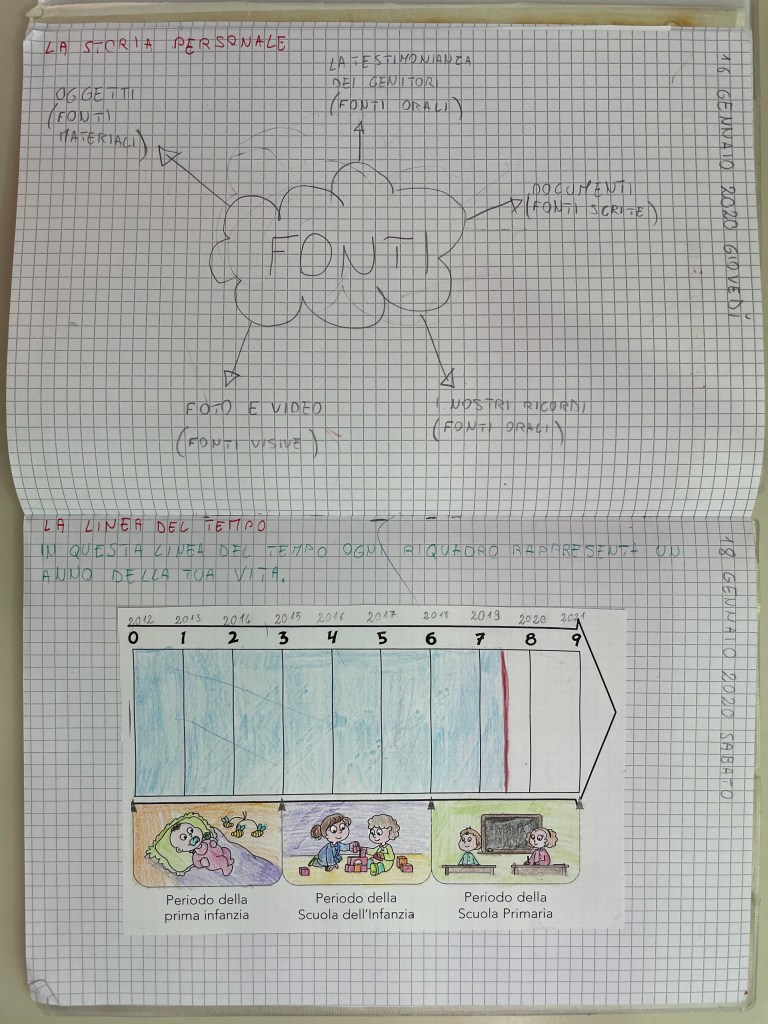 16 GENNAIO 2020 GIOVEDÌ
LA STORIA PERSONALE
LA TESTIMONIANZA
DEI GENITORI
(FONTI ORALI)
OGGETTI
(FONTI
MATERIALI)
DOCUMENTI
(FONTI SCRITE)
FONTI
FOTO E VIDEO
(FONTI VISIVE)
I NOSTRI RICORDI
(FONTI ORALI)
18 GENNAIO 2020 SABATO
LA LINEA DEL TEMPO
IN QUESTA LINEA DEL TEMPO OGNI RIQUADRO RAPPRESENTA UN
ANNO DELLA TUA VITA.
2012 2013 2014 2015 2016 2017 2018 2019 2020 2021
0 1 2 3 4 5 6 7 8 9
Periodo della
prima infanzia
Periodo della
Scuola dell'Infanzia
Periodo della
Scuola Primaria